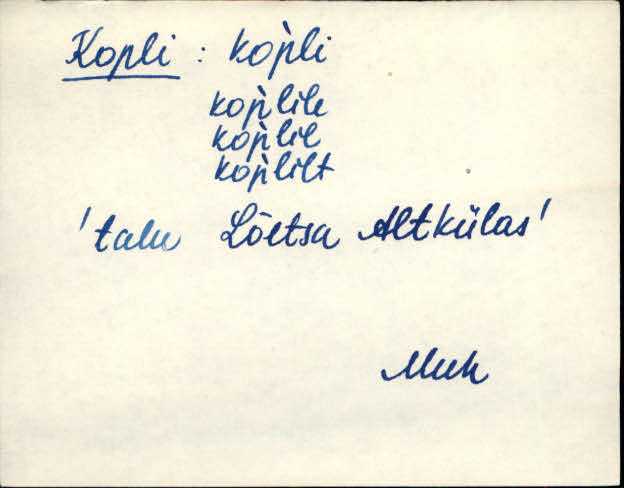 Kopli : kop̀li
kop̀lile
kop̀lil
kop̀lilt
'talu Lõetsa Altkülas'
Muh